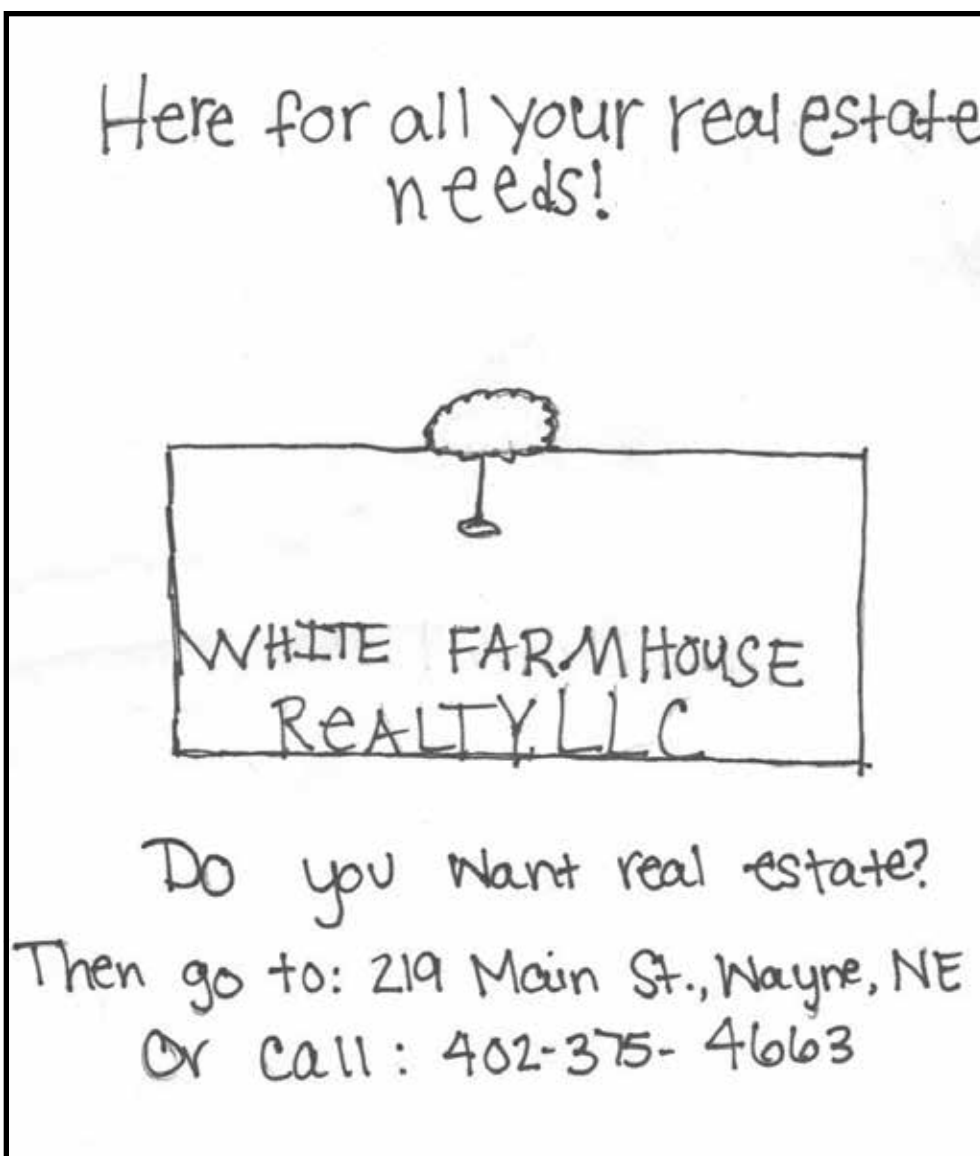 Here for all your real estate
needs!
WHITE FARMHOUSE
ReALTY, LLC
Do you want real estate?
Then go to: 219 Main St., Wayne, NE
Or call: 402-375-4663